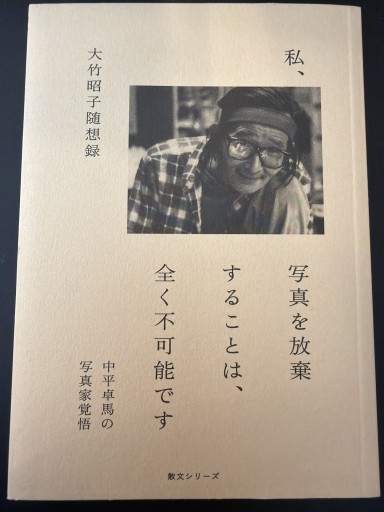 私、
写真を放棄
することは、
全く不可能です
中平卓馬の
写真家覚悟
大竹昭子随想録
散文シリーズ